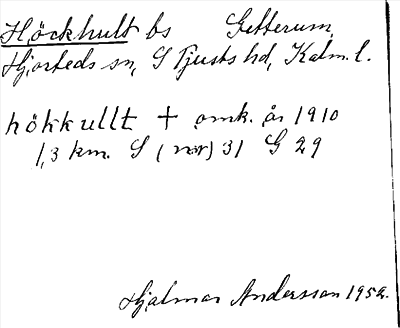 Höckhult bs Getterum,
Hjorteds sn, S Tjusts hd, Kalm. l.
hökkullt + omk. år 1910
1,3 km. S (nov) 31 G 29
Hjalmar Andersson 1952.